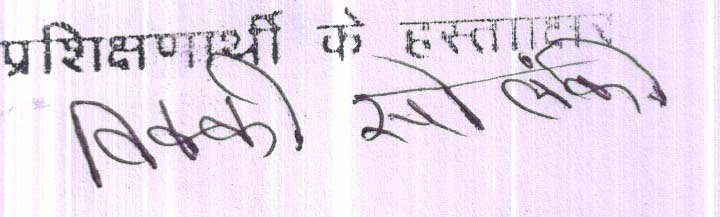 प्रशिक्षणार्थी के हस्ताक्षर
विक्की सोलंकी